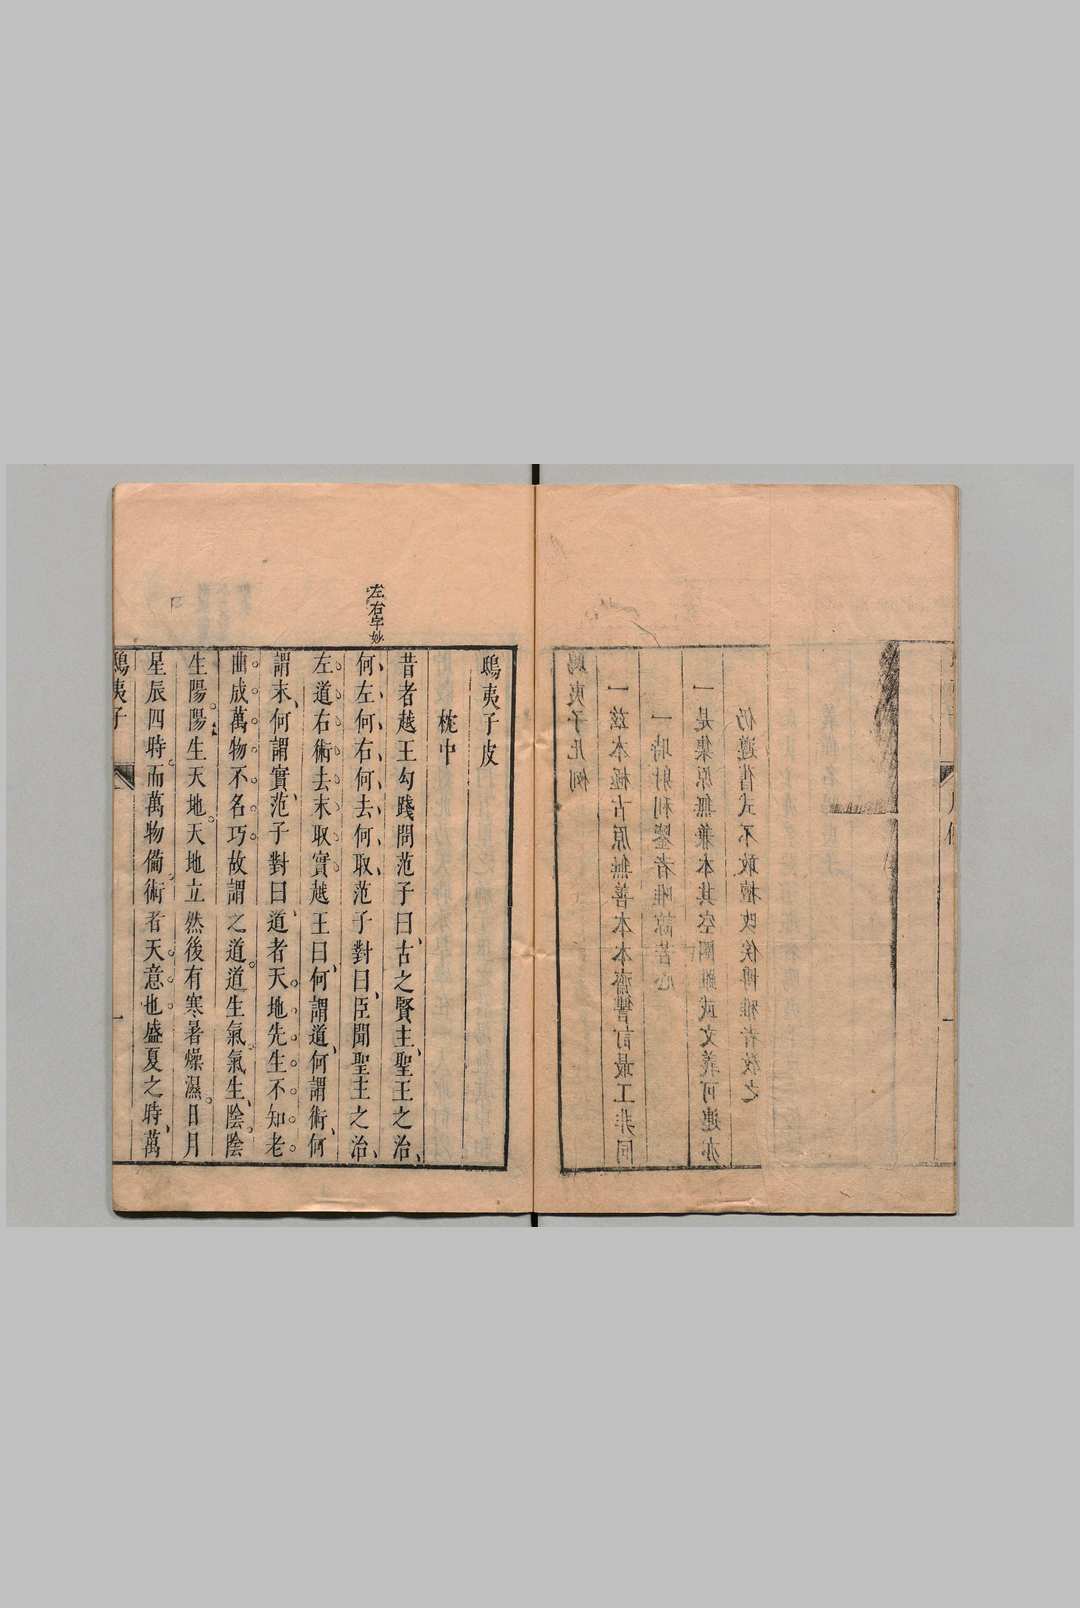 鴟夷子凡例
一茲本極古原無善本本齋讐訂最工非同
一時射利鑒者唯諒苦心
一是集原無兼本其空圈雖或文義可連亦
仍遵舊式不敢擅改俟博雅者教之
鴟夷子皮
枕中
昔者越王勾踐問范子曰古之賢主聖王之治
左右字妙
何左何右何去何取范子對曰臣聞聖主之治
左道右術去末取實越王曰何謂道何謂術何
謂末何謂實范子對曰道者天地先生不知老
曲成萬物不名巧故謂之道道生氣氣生陰陰
生陽陽生天地天地立然後有寒暑燥濕日月
星辰四時而萬物備術者天意也盛夏之時萬
鴟夷子
一